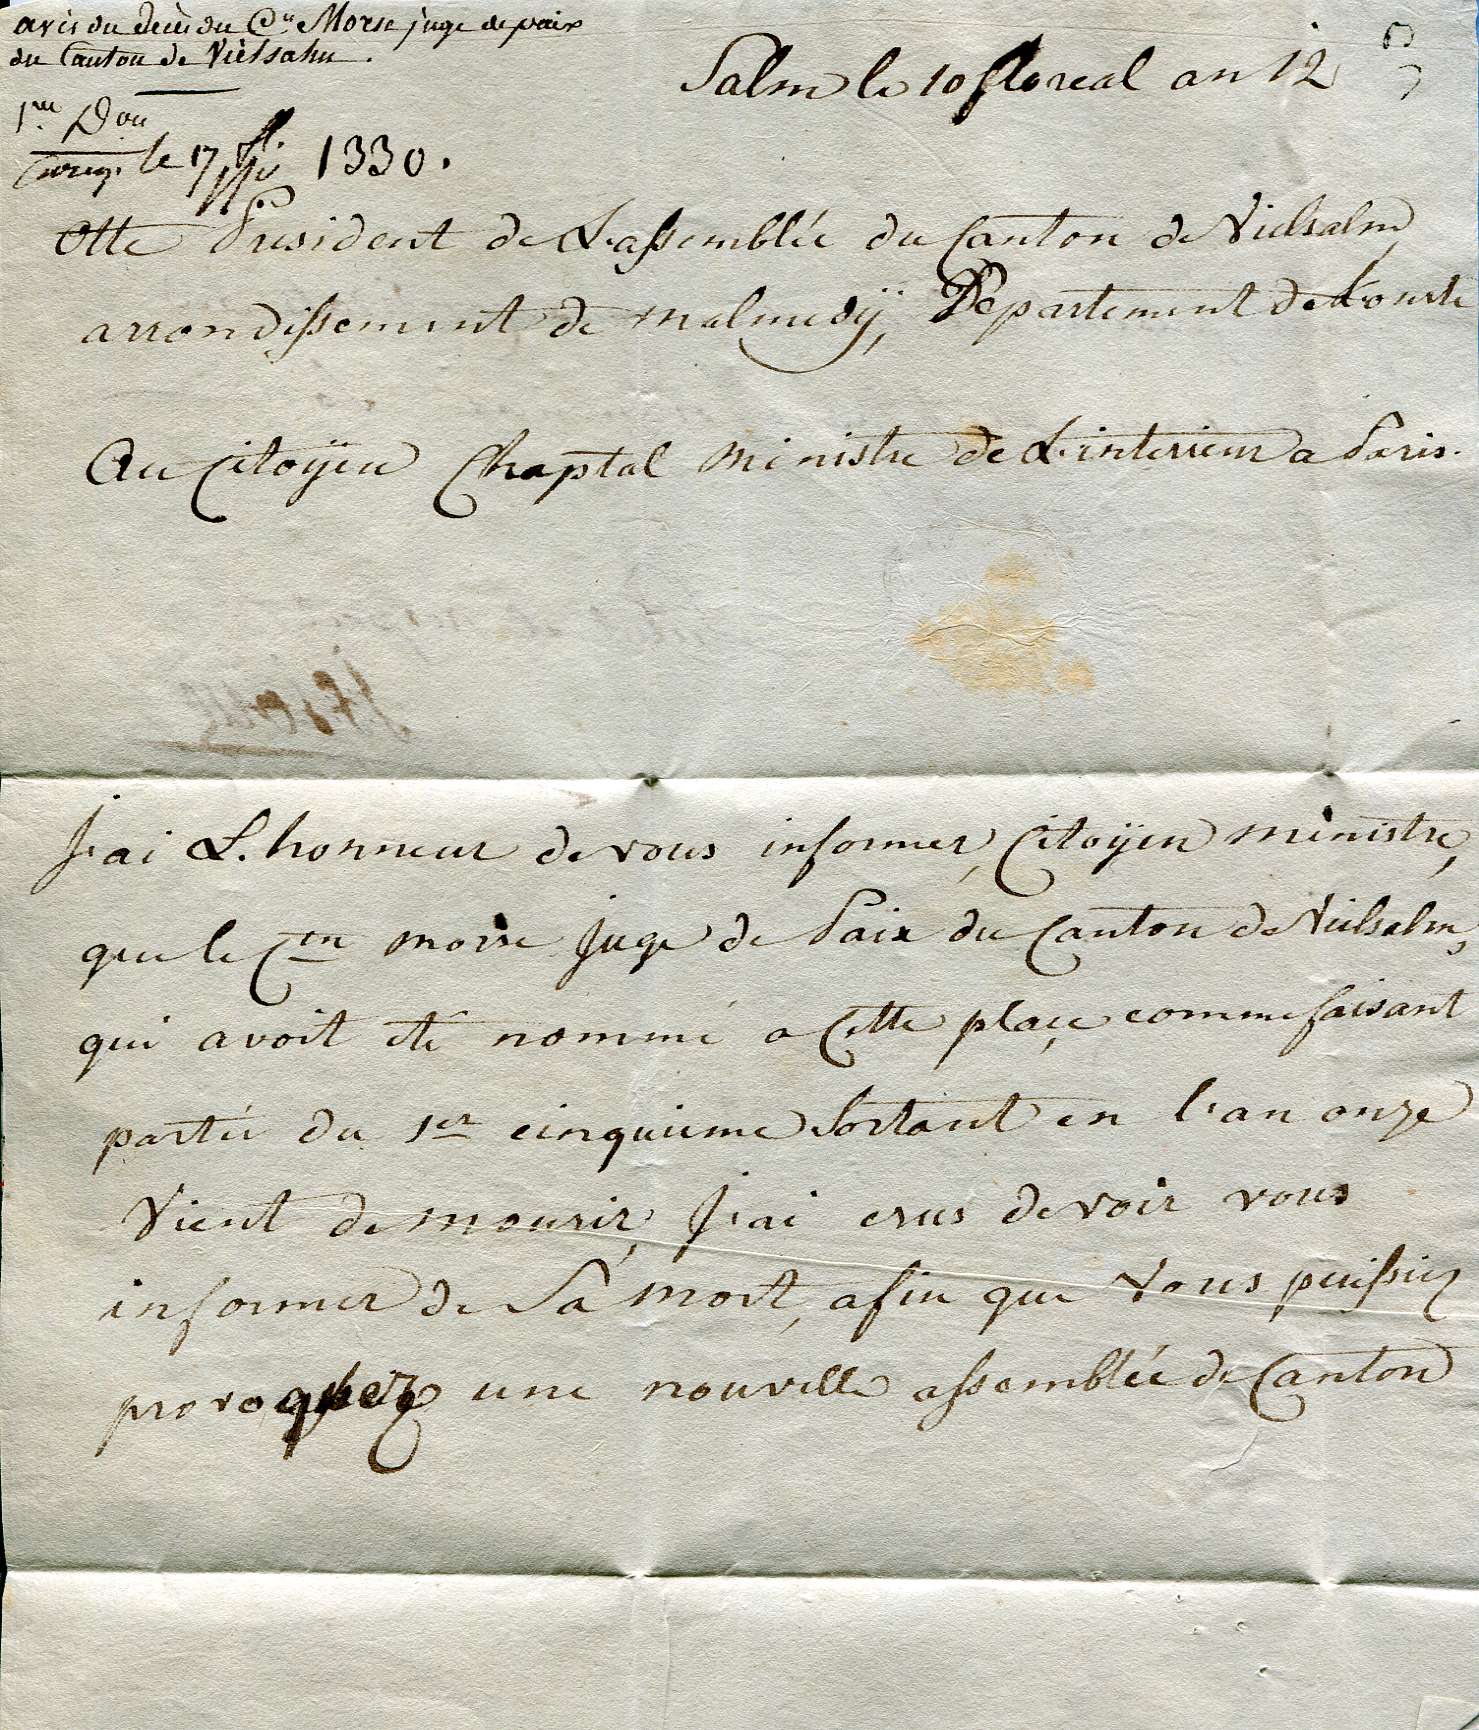 avis du décès du C.en Morse juge de paix
du Canton de Vielsalm.
1re Don
enreg. le 17 1330.
Salm le 10 floreal an 12
Otte President de L'assemblée du Canton de Vielsalm,
arrondissement de malmedÿ, Departement de L'ourte
Au Citoÿen Chaptal ministre de L'interieur a Paris.
J'ai L'honneur de vous informer, Citoÿen ministre,
que le Cen morse Juge de Paix du Canton de Vielsalm,
qui avoit eté nommé a Cette plaçe comme faisant
partie du 1er cinquieme Sortant en l'an onze
Vient de mourir, J'ai crus devoir vous
informer de Sa mort, afin que Vous puissiez
provoquez une nouvelle assemblée de Canton